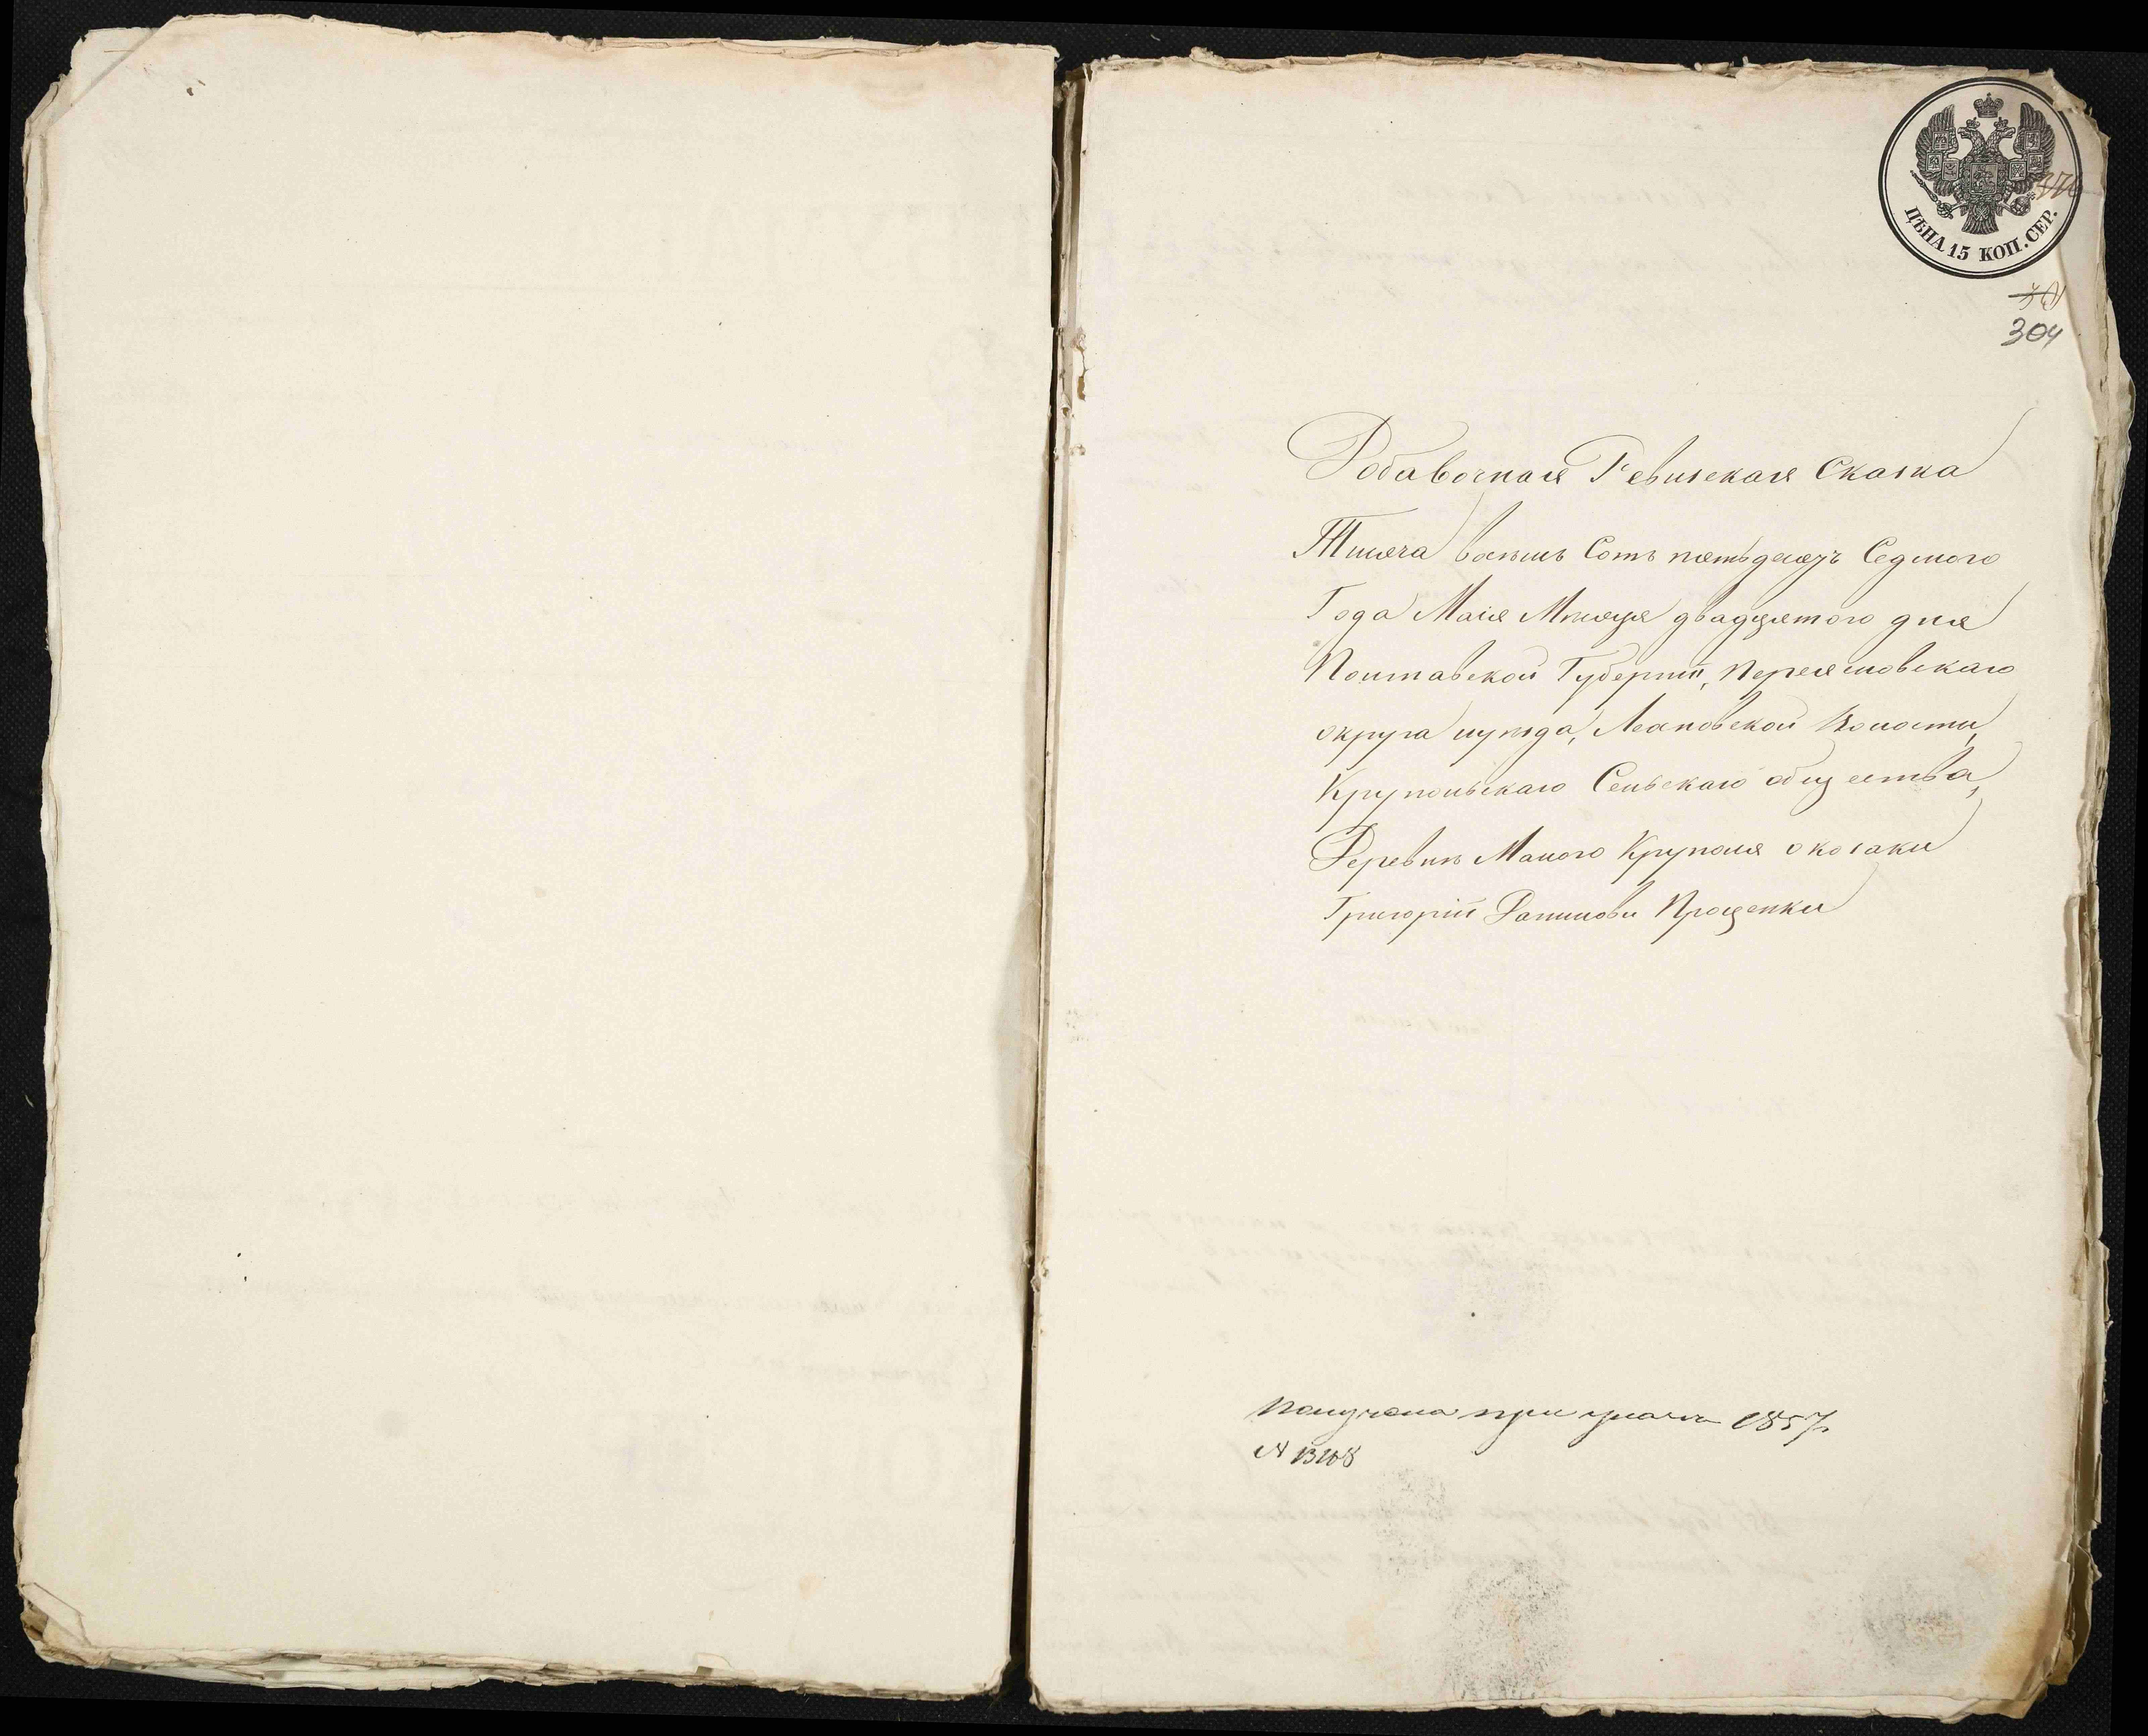 ЦѢНА 15 КОП. СЕР.
304
Добавочная Ревизская Сказка
Тысяча восемь Сотъ пятьдесятъ Седмого
Года Маія Мѣсяца двадцятого дня
Полтавской Губерніи, Переясловскаго
округа иуѣзда, Леляковской Волости,
Крупольскаго Сельскаго общества,
Деревнѣ Малого Круполя о козаки
Григорій Данилови Проценки
Получена при 1857
N